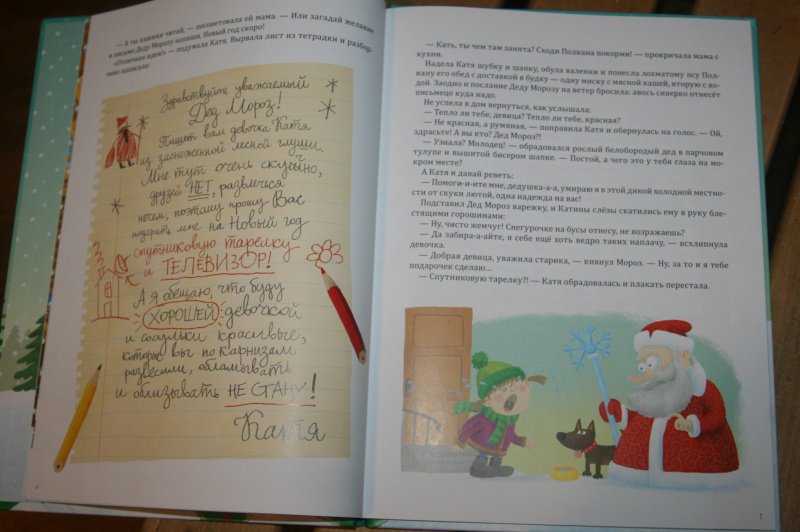 — А ты книжки читай, — посоветовала ей мама. — Или загадай желание
и письмо Деду Морозу напиши. Новый год скоро!
«Отличная идея!» — подумала Катя. Вырвала лист из тетрадки и разбор-
чиво написала:
Здравствуйте уважаемый
Дед Мороз!
Пишет вам девочка Катя
из заснеженной лесной глуши.
Мне тут очень скучно,
друзей НЕТ, развлечься
нечем, поэтому прошу Вас
подарить мне на Новый год
спутниковую тарелку
и ТЕЛЕВИЗОР!
А я обещаю, что буду
ХОРОШЕЙ девочкой
и сосульки красивые,
которые вы по карнизам
развесили, обламывать
и облизывать НЕ СТАНУ!
Катя
6
— Кать, ты чем там занята? Сходи Полкана покорми! — прокричала мама с
кухни.
Надела Катя шубку и шапку, обула валенки и понесла лохматому псу Пол-
кану его обед с доставкой в будку — одну миску с мясной кашей, вторую с во-
дой. Заодно и послание Деду Морозу на ветер бросила: авось сиверко отнесёт
письмецо куда надо.
Не успела в дом вернуться, как услышала:
— Тепло ли тебе, девица? Тепло ли тебе, красная?
— Не красная, а румяная, — поправила Катя и обернулась на голос. — Ой,
здрасьте! А вы кто? Дед Мороз?!
— Узнала? Молодец! — обрадовался рослый белобородый дед в парчовом
тулупе и вышитой бисером шапке. — Постой, а чего это у тебя глаза на мо-
кром месте?
А Катя и давай реветь:
— Помоги-и-ите мне, дедушка-а-а, умираю я в этой дикой холодной местно-
сти от скуки лютой, одна надежда на вас!
Подставил Дед Мороз варежку, и Катины слёзы скатились ему в руку бле-
стящими горошинами:
— Ну, чисто жемчуг! Снегурочке на бусы отнесу, не возражаешь?
— Да забира-а-айте, я себе ещё хоть ведро таких наплачу, — всхлипнула
девочка.
— Добрая девица, уважила старика, — кивнул Мороз. — Ну, за то и я тебе
подарочек сделаю...
— Спутниковую тарелку?! — Катя обрадовалась и плакать перестала.
7